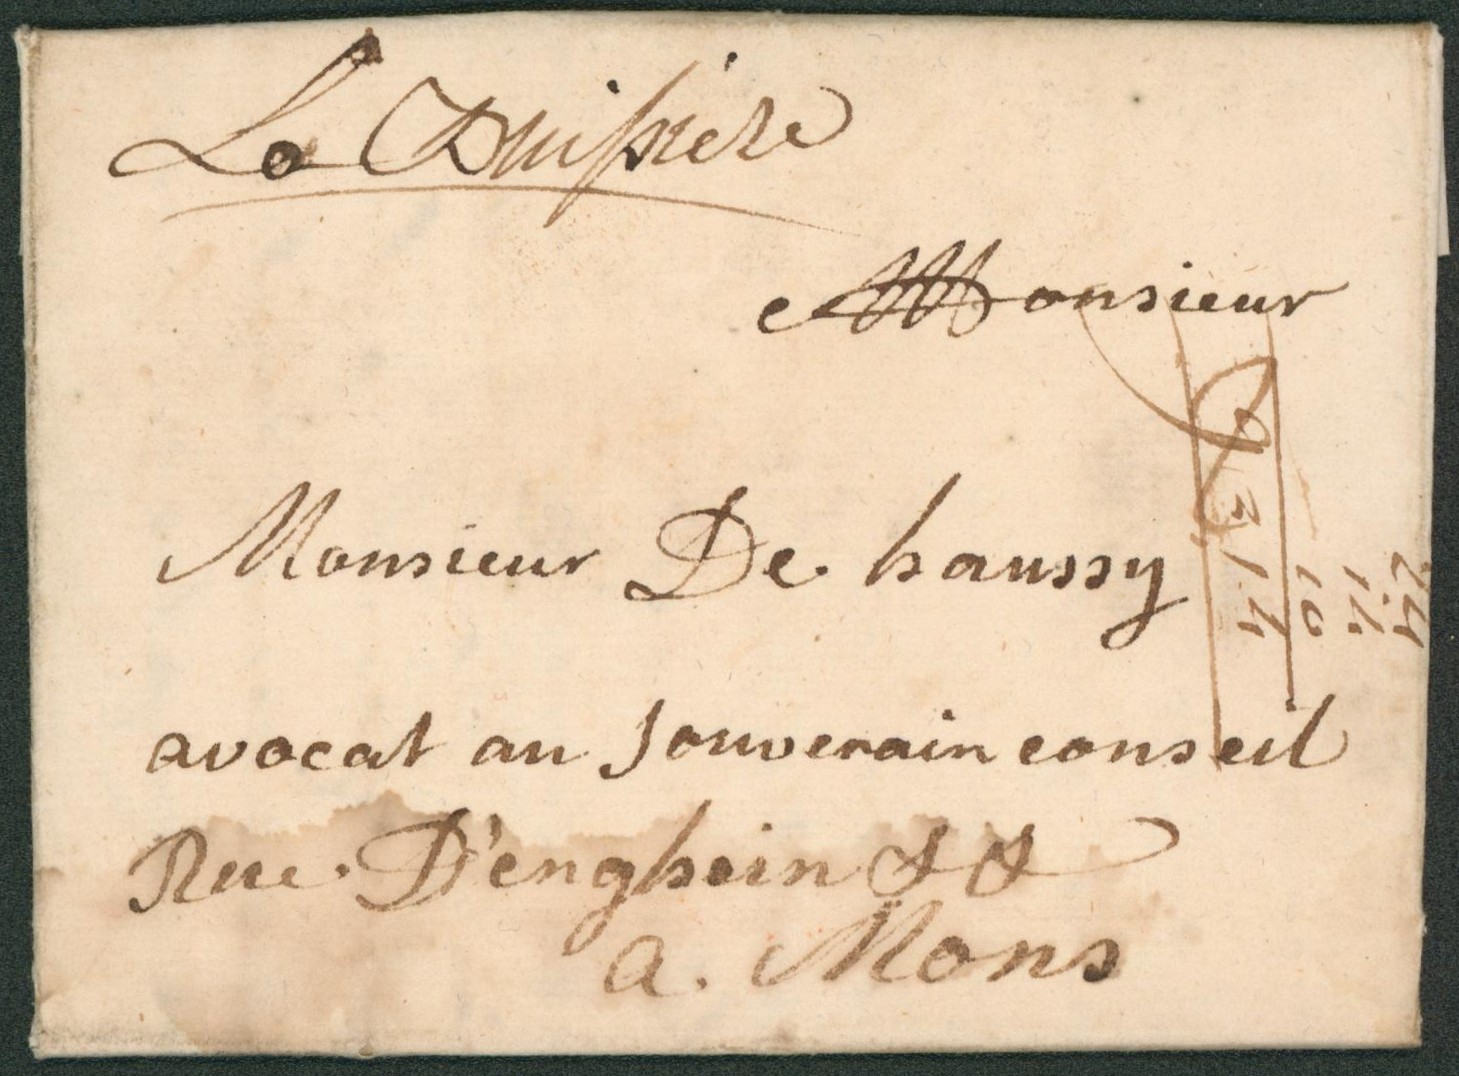 La Buissiere
Monsieur
Monsieur De haussy
avocat au souverain conseil
Rue. D'enghein &&
a. Mons